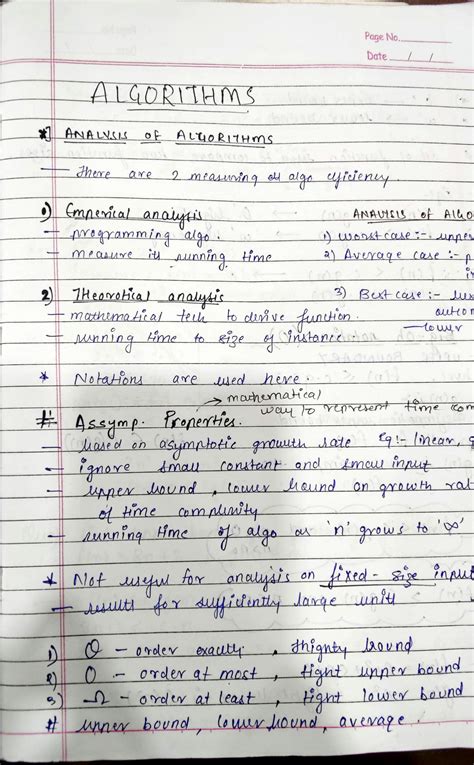 Page No.
Date / /
ALGORITHMS
*] ANALYSIS OF ALGORITHMS
— There are 2 measuring algo efficiency.
1) Emperical analysis
— programming algo.
— measure its running time
ANALYSIS of ALGO
1) worst case :- upper
2) Average case :-
3) Best case :-
outcom
— lower
2) Theorotical analysis
— mathematical tech to derive function.
— running time to size of instance
* Notations are used here.
→ mathematical
way to represent time com
# Assymp. Properties.
— based on asymptotic growth rate Eg:- linear,
— ignore small constant and small input
— upper bound, lower bound on growth rat
of time complexity
— running time of algo as 'n' grows to '∞'
* Not useful for analysis on fixed - size input
— results for sufficiently large units
1) Θ — order exactly, thighty bound
2) O — order at most, tight upper bound
3) Ω — order at least, tight lower bound
# upper bound, lower bound, average.